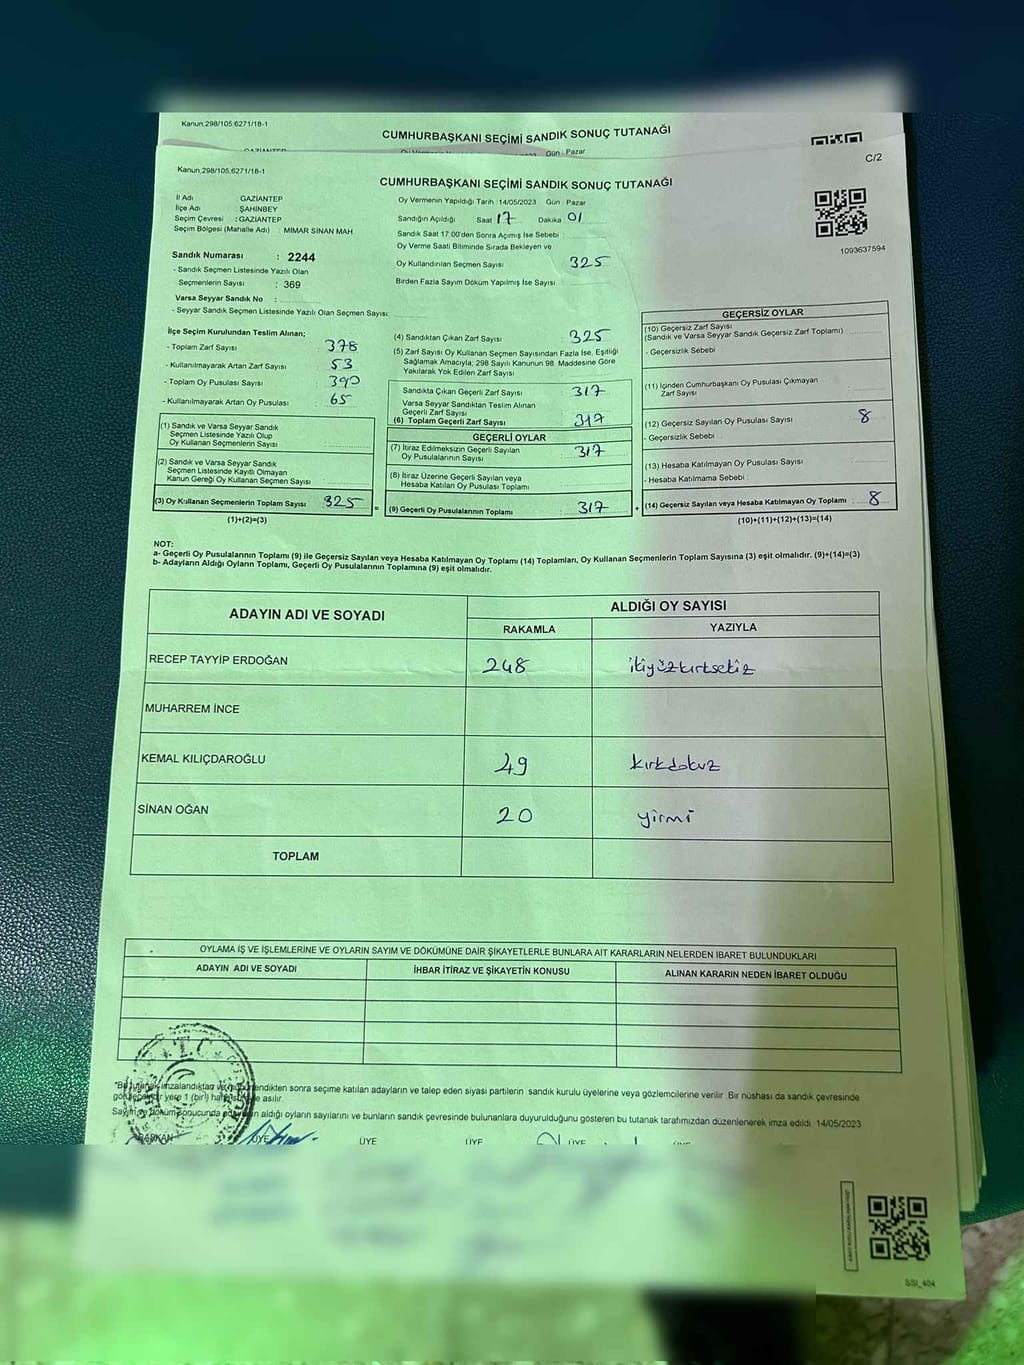 Kanun;298/105;6271/18-1
CUMHURBAŞKANI SEÇİMİ SANDIK SONUÇ TUTANAĞI
GAZİANTEP
Gün : Pazar
Kanun;298/105;6271/18-1
C/2
CUMHURBAŞKANI SEÇİMİ SANDIK SONUÇ TUTANAĞI
İl Adı : GAZİANTEP
İlçe Adı : ŞAHİNBEY
Seçim Çevresi : GAZİANTEP
Seçim Bölgesi (Mahalle Adı) : MİMAR SİNAN MAH
Sandık Numarası : 2244
- Sandık Seçmen Listesinde Yazılı Olan
Seçmenlerin Sayısı : 369
Varsa Seyyar Sandık No :
- Seyyar Sandık Seçmen Listesinde Yazılı Olan Seçmen Sayısı:
Oy Vermenin Yapıldığı Tarih : 14/05/2023 Gün : Pazar
Sandığın Açıldığı Saat 17 Dakika 01
Sandık Saat 17:00'den Sonra Açımış İse Sebebi :
Oy Verme Saati Bitiminde Sırada Bekleyen ve
Oy Kullandırılan Seçmen Sayısı 325
Birden Fazla Sayım Döküm Yapılmış İse Sayısı :
1093637594
İlçe Seçim Kurulundan Teslim Alınan;
- Toplam Zarf Sayısı : 378
- Kullanılmayarak Artan Zarf Sayısı : 53
- Toplam Oy Pusulası Sayısı : 390
- Kullanılmayarak Artan Oy Pusulası : 65
(1) Sandık ve Varsa Seyyar Sandık
Seçmen Listesinde Yazılı Olup
Oy Kullanan Seçmenlerin Sayısı
(2) Sandık ve Varsa Seyyar Sandık
Seçmen Listesinde Kayıtlı Olmayan
Kanun Gereği Oy Kullanan Seçmen Sayısı
(3) Oy Kullanan Seçmenlerin Toplam Sayısı 325
(1)+(2)=(3)
=
(4) Sandıktan Çıkan Zarf Sayısı : 325
(5) Zarf Sayısı Oy Kullanan Seçmen Sayısından Fazla İse, Eşitliği
Sağlamak Amacıyla; 298 Sayılı Kanunun 98. Maddesine Göre
Yakılarak Yok Edilen Zarf Sayısı :
Sandıkta Çıkan Geçerli Zarf Sayısı : 317
Varsa Seyyar Sandıktan Teslim Alınan
Geçerli Zarf Sayısı
(6) Toplam Geçerli Zarf Sayısı : 317
GEÇERLİ OYLAR
(7) İtiraz Edilmeksizin Geçerli Sayılan
Oy Pusulalarının Sayısı : 317
(8) İtiraz Üzerine Geçerli Sayılan veya
Hesaba Katılan Oy Pusulası Toplamı
(9) Geçerli Oy Pusulalarının Toplamı : 317
+
GEÇERSİZ OYLAR
(10) Geçersiz Zarf Sayısı
(Sandık ve Varsa Seyyar Sandık Geçersiz Zarf Toplamı)
- Geçersizlik Sebebi
(11) İçinden Cumhurbaşkanı Oy Pusulası Çıkmayan
Zarf Sayısı
(12) Geçersiz Sayılan Oy Pusulası Sayısı : 8
- Geçersizlik Sebebi
(13) Hesaba Katılmayan Oy Pusulası Sayısı :
- Hesaba Katılmama Sebebi :
(14) Geçersiz Sayılan veya Hesaba Katılmayan Oy Toplamı : 8
(10)+(11)+(12)+(13)=(14)
NOT:
a- Geçerli Oy Pusulalarının Toplamı (9) ile Geçersiz Sayılan veya Hesaba Katılmayan Oy Toplamı (14) Toplamları, Oy Kullanan Seçmenlerin Toplam Sayısına (3) eşit olmalıdır. (9)+(14)=(3)
b- Adayların Aldığı Oyların Toplamı, Geçerli Oy Pusulalarının Toplamına (9) eşit olmalıdır.
ADAYIN ADI VE SOYADI
ALDIĞI OY SAYISI
RAKAMLA YAZIYLA
RECEP TAYYİP ERDOĞAN 248 ikiyüzkırksekiz
MUHARREM İNCE
KEMAL KILIÇDAROĞLU 49 kırkdokuz
SİNAN OĞAN 20 yirmi
TOPLAM
OYLAMA İŞ VE İŞLEMLERİNE VE OYLARIN SAYIM VE DÖKÜMÜNE DAİR ŞİKAYETLERLE BUNLARA AİT KARARLARIN NELERDEN İBARET BULUNDUKLARI
ADAYIN ADI VE SOYADI İHBAR İTİRAZ VE ŞİKAYETİN KONUSU ALINAN KARARIN NEDEN İBARET OLDUĞU
T.C.
sonra seçime katılan adayların ve talep eden siyasi partilerin sandık kurulu üyelerine veya gözlemcilerine verilir. Bir nüshası da sandık çevresinde
yere 1 (bir) asılır.
Sayım ve döküm sonucunda aldığı oyların sayılarını ve bunların sandık çevresinde bulunanlara duyurulduğunu gösteren bu tutanak tarafımızdan düzenlenerek imza edildi. 14/05/2023
BAŞKAN ÜYE ÜYE ÜYE ÜYE
SSI_404